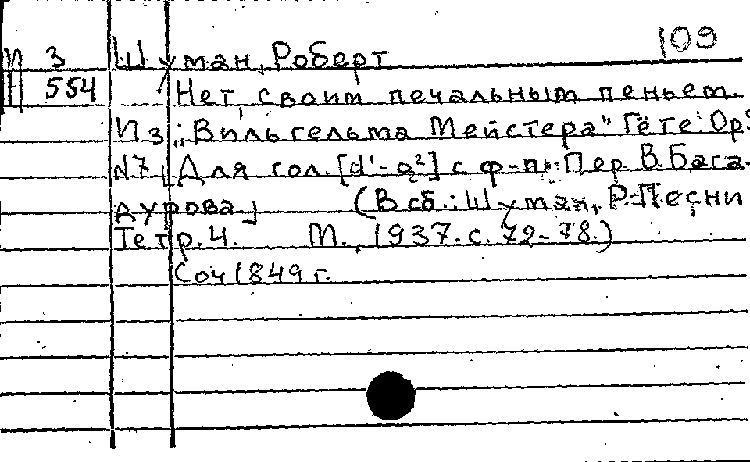 109
И 3 Шуман, Роберт
554 Нет, своим печальным пеньем.
Из „Вильгельма Мейстера" Гёте. Ор.
Для гол. [d'-a²] с ф-п. Пер. В. Бага-
дурова.] (В сб.: Шуман, Р. Песни
Тетр. 4. М., 1937. с. 72-78.)
Соч 1849 г.